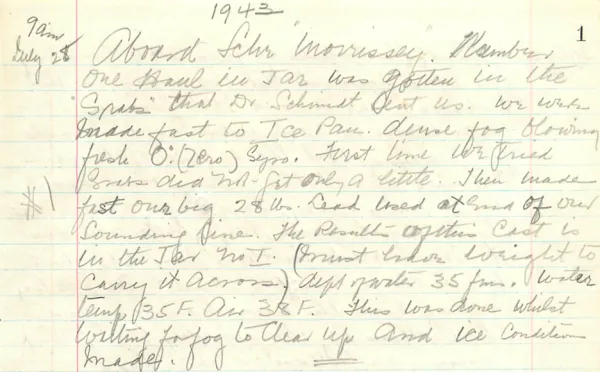 1943
1
9am
July 28
Aboard Schr "Morrissey". Number
One Haul in Jar was gotten in the
"Grabs" that Dr. Schmidt lent us. We were
made fast to Ice Pan. dense fog blowing
fresh O. (zero) Gyro. First time we tried
Grabs did not get only a little. Then made
fast our big 28 lb. Lead used at end of our
#1
Sounding line. The Results of this Cast is
in the Jar No I. (must have weight to
Carry it Across) dept of water 35 fms. water
temp 35 F. Air 38 F. This was done whilst
waiting for fog to Clear up And ice Condition
made.